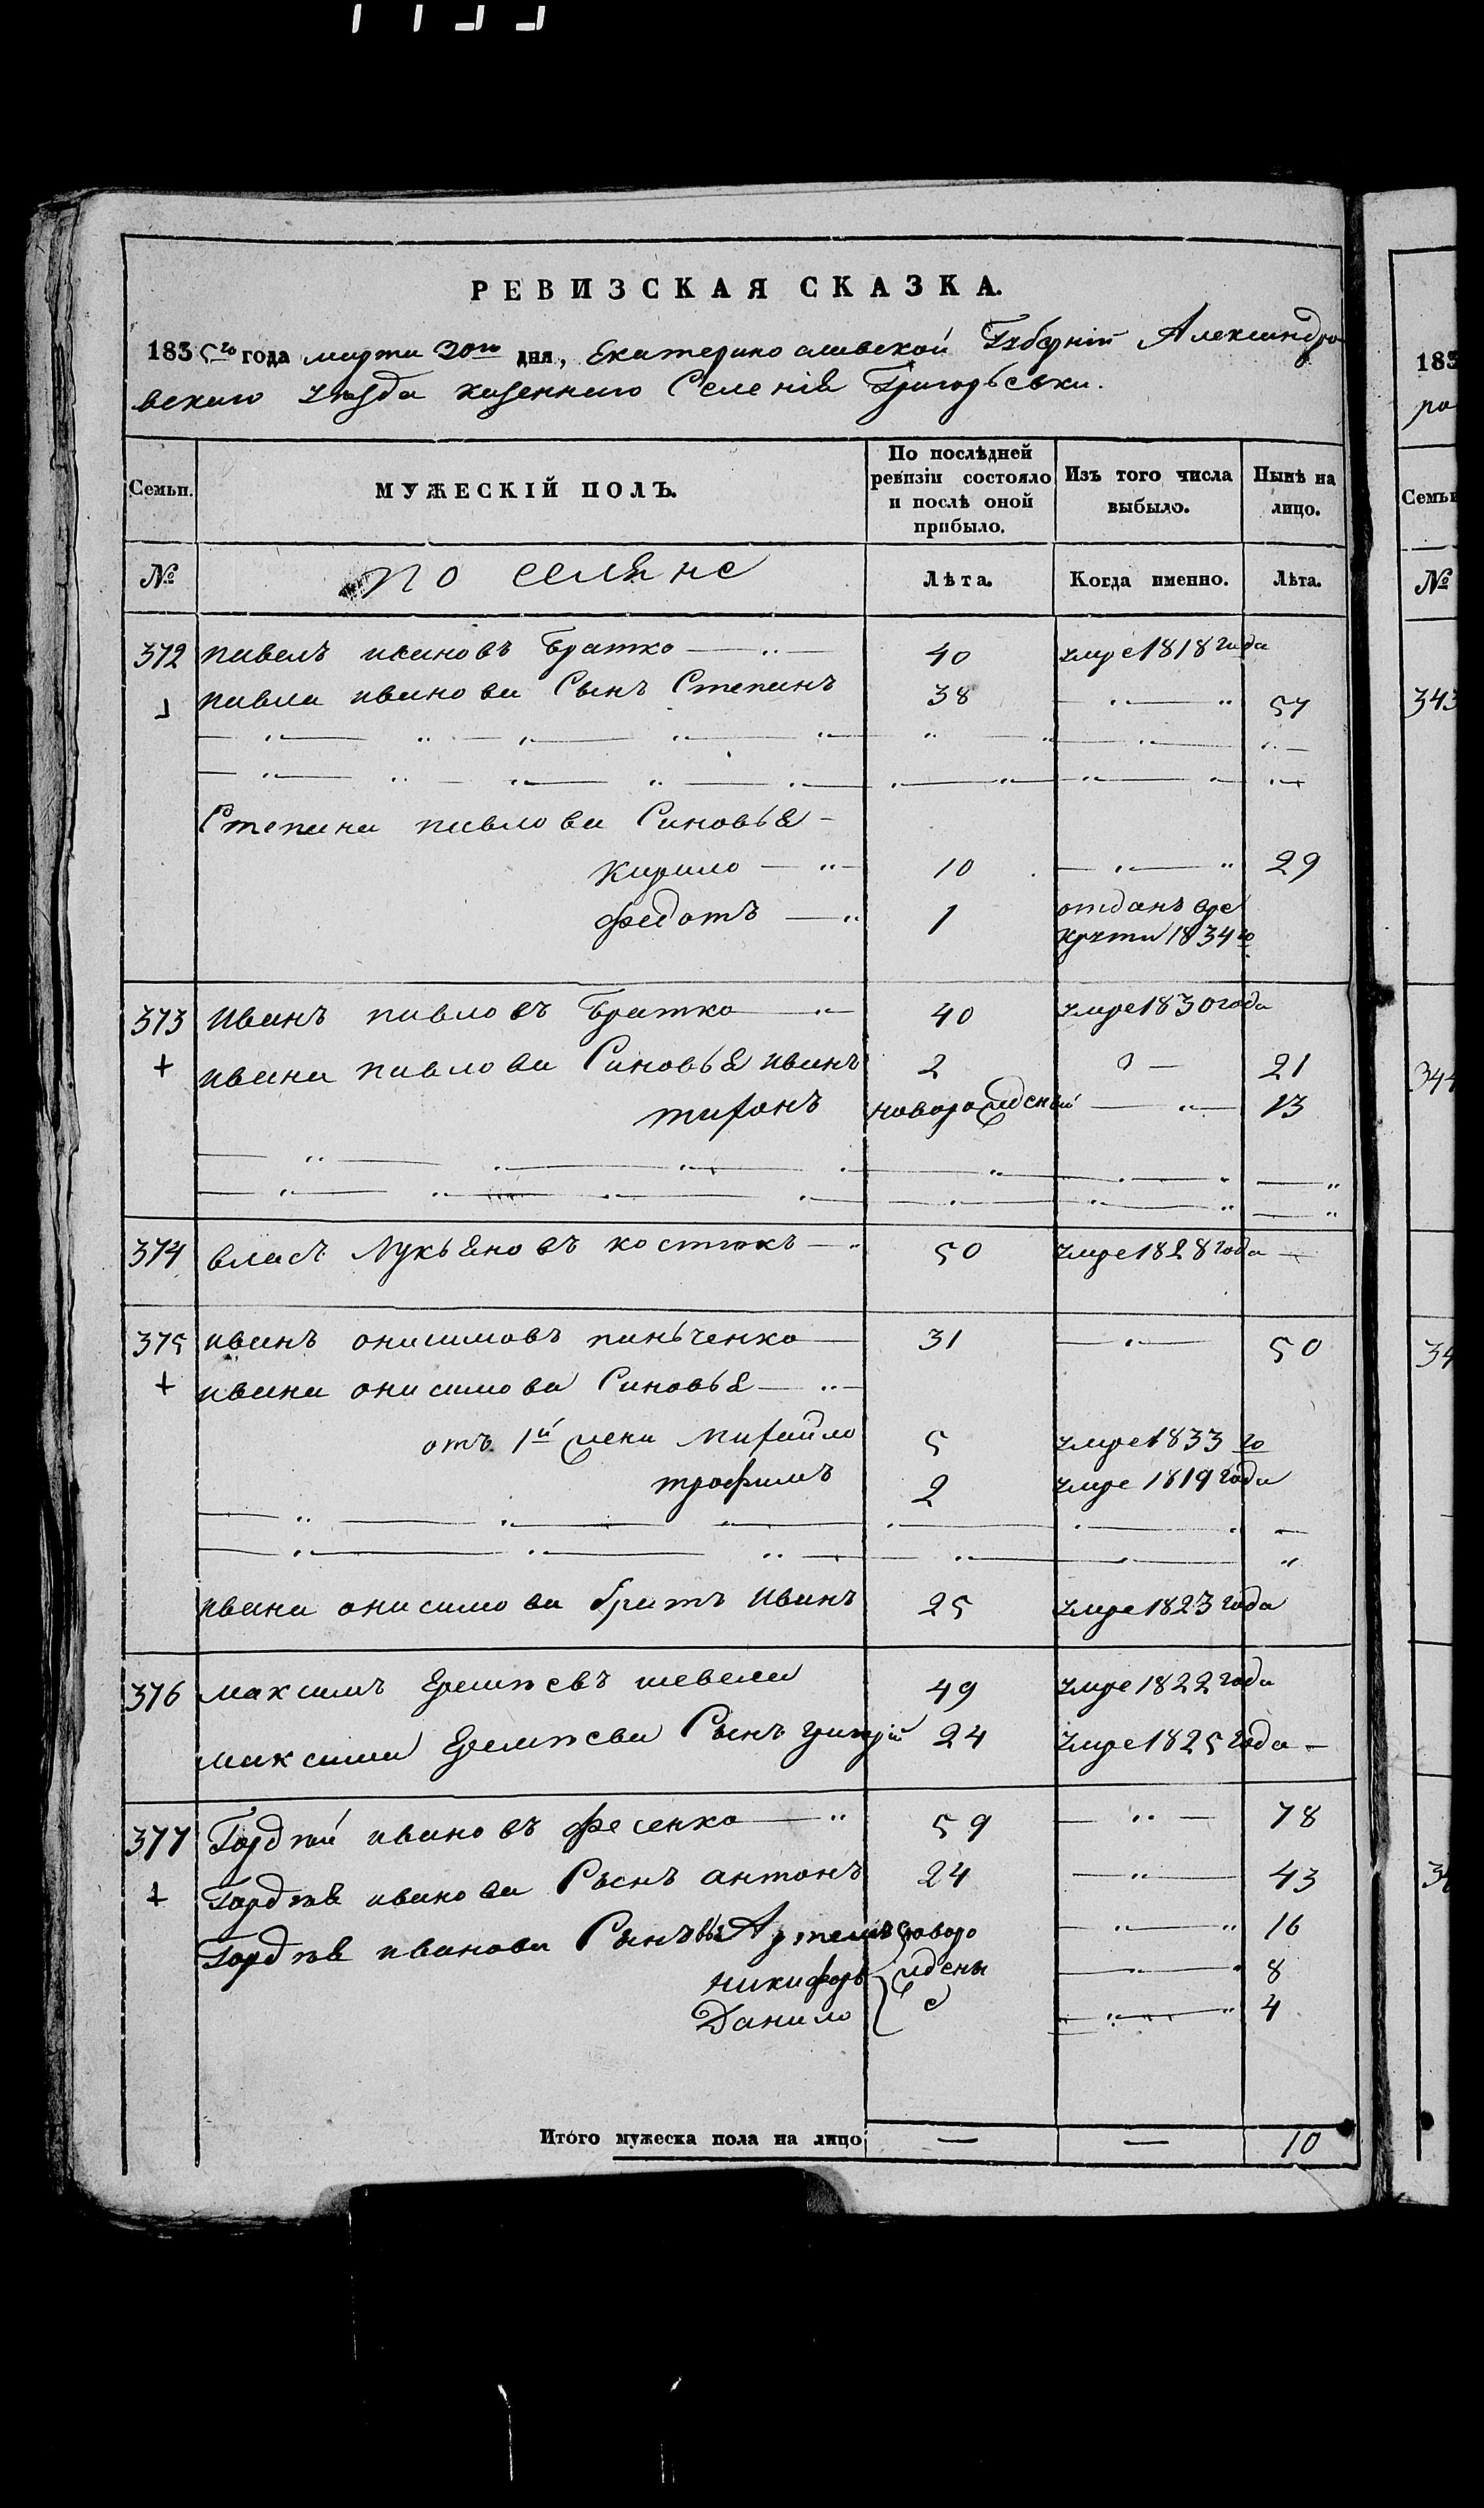 РЕВИЗСКАЯ СКАЗКА.
1835го года марта 30го дня, Екатеринославской Губерніи Александро
вскаго уѣзда казеннаго Селенія Григорьевки.
Семьи. МУЖЕСКІЙ ПОЛЪ. По послѣдней ревизіи состояло и послѣ оной прибыло. Изъ того числа выбыло. Нынѣ на лицо.
№ поселяне Лѣта. Когда именно. Лѣта.
372 павелъ ивановъ Братко 40 умре 1818 года
павла иванова Сынъ Степанъ 38 57
Степана павлова Синовья
Кирило 10 29
федотъ 1 отданъ вре
круты 1834го
373 Иванъ павловъ Братко 40 умре 1830 года
+ ивана павлова Синовья иванъ 2 21
тихонъ новорожденый 13
374 власъ Лукьяновъ костюкъ 50 умре 1828 года
375 иванъ онисимовъ паньченко 31 50
+ ивана онисимова Синовья
отъ 1й жени михайло 5 умре 1833го
трофимъ 2 умре 1819 года
ивана онисимова братъ иванъ 25 умре 1823 года
376 максимъ Еремѣевъ шевели 49 умре 1822 года
максима Еремѣева Сынъ григрій 24 умре 1825 года
377 Гордѣй ивановъ фесенко 59 78
+ Гордѣя иванова Сынъ антонъ 24 43
Гордѣя иванова Сыновья Артемъ новоро 16
никифоръ ждены 8
Данило е 4
Итого мужеска пола на лицо — — 10
183
ра
Семьи
№
343
344
34
34